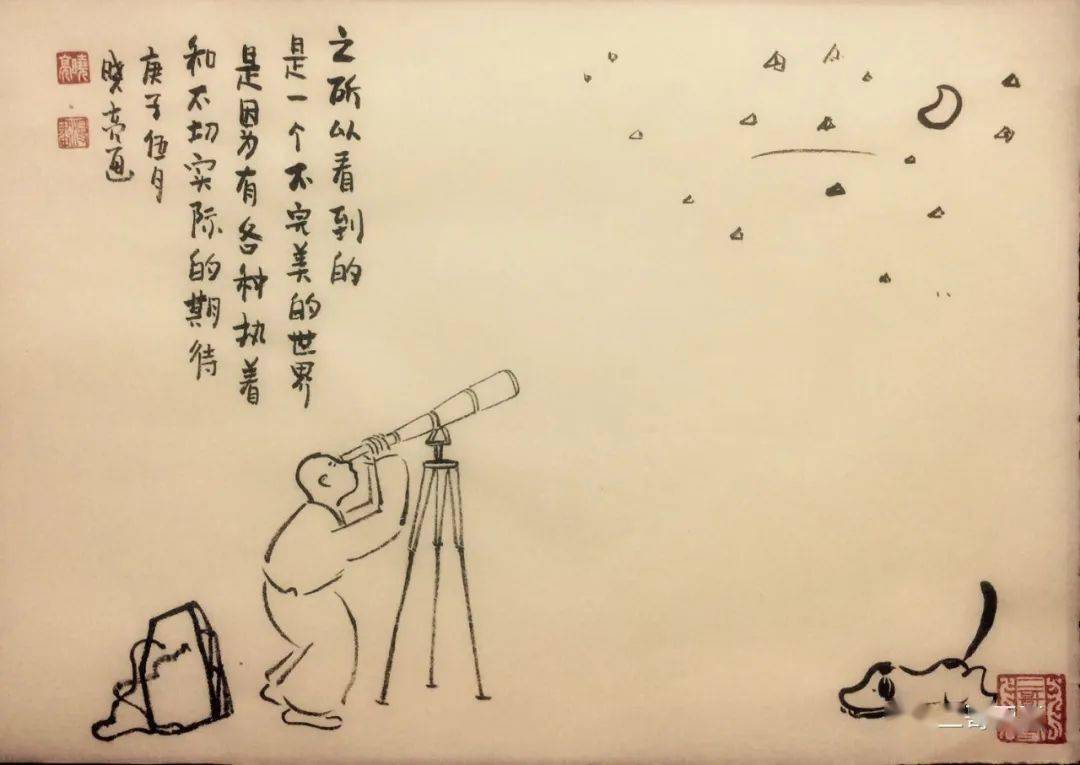 之所以看到的
是一个不完美的世界
是因为有各种执着
和不切实际的期待
庚子伍月
晓亮画